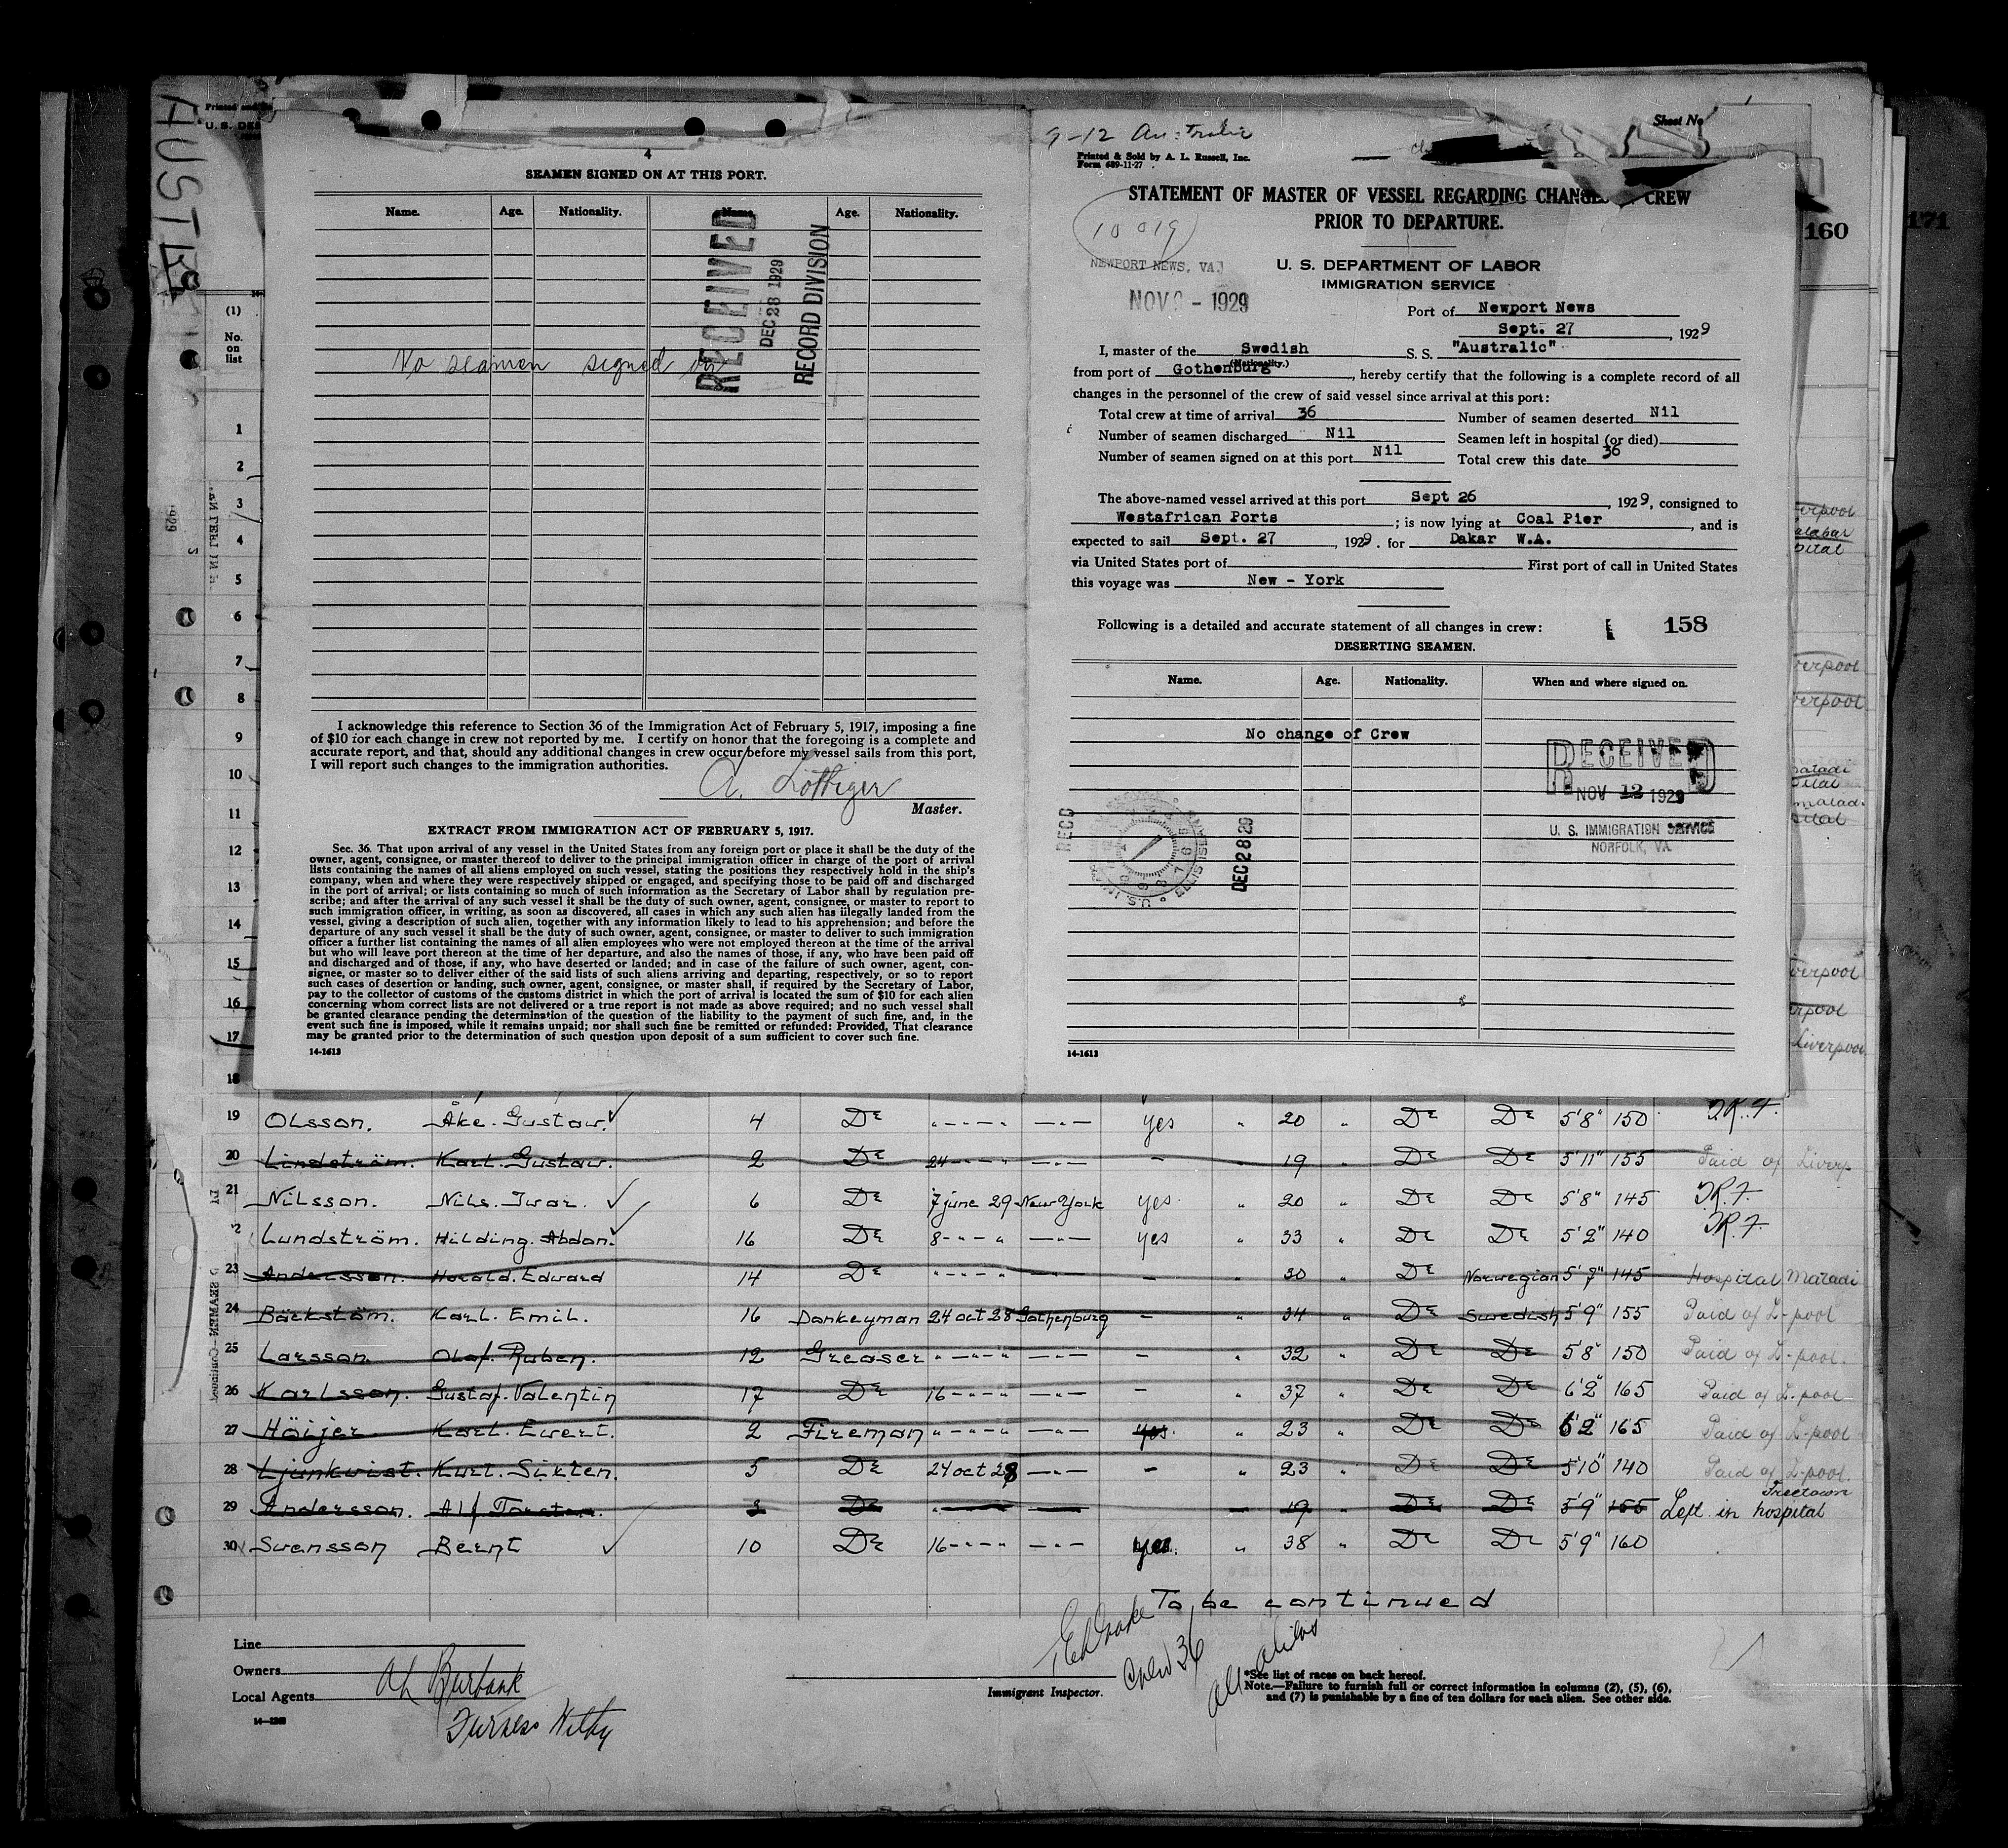 AUSTR
Printed and
U. S. DE
(1)
No.
on
list
1
2
3
4
5
6
7
8
9
10
11
12
13
14
15
16
17
18
4
SEAMEN SIGNED ON AT THIS PORT.
Name. Age. Nationality. Name. Age. Nationality.
RECEIVED
DEC 28 1929
RECORD DIVISION
No seamen signed on
I acknowledge this reference to Section 36 of the Immigration Act of February 5, 1917, imposing a fine
of $10 for each change in crew not reported by me. I certify on honor that the foregoing is a complete and
accurate report, and that, should any additional changes in crew occur before my vessel sails from this port,
I will report such changes to the immigration authorities.
Master.
EXTRACT FROM IMMIGRATION ACT OF FEBRUARY 5, 1917.
Sec. 36. That upon arrival of any vessel in the United States from any foreign port or place it shall be the duty of the
owner, agent, consignee, or master thereof to deliver to the principal immigration officer in charge of the port of arrival
lists containing the names of all aliens employed on such vessel, stating the positions they respectively hold in the ship's
company, when and where they were respectively shipped or engaged, and specifying those to be paid off and discharged
in the port of arrival; or lists containing so much of such information as the Secretary of Labor shall by regulation pre-
scribe; and after the arrival of any such vessel it shall be the duty of such owner, agent, consignee, or master to report to
such immigration officer, in writing, as soon as discovered, all cases in which any such alien has illegally landed from the
vessel, giving a description of such alien, together with any information likely to lead to his apprehension; and before the
departure of any such vessel it shall be the duty of such owner, agent, consignee, or master to deliver to such immigration
officer a further list containing the names of all alien employees who were not employed thereon at the time of the arrival
but who will leave port thereon at the time of her departure, and also the names of those, if any, who have been paid off
and discharged and of those, if any, who have deserted or landed; and in case of the failure of such owner, agent, con-
signee, or master so to deliver either of the said lists of such aliens arriving and departing, respectively, or so to report
such cases of desertion or landing, such owner, agent, consignee, or master shall, if required by the Secretary of Labor,
pay to the collector of customs of the customs district in which the port of arrival is located the sum of $10 for each alien
concerning whom correct lists are not delivered or a true report is not made as above required; and no such vessel shall
be granted clearance pending the determination of the question of the liability to the payment of such fine, and, in the
event such fine is imposed, while it remains unpaid; nor shall such fine be remitted or refunded: Provided, That clearance
may be granted prior to the determination of such question upon deposit of a sum sufficient to cover such fine.
14-1613
9-12 Australic
Sheet No
Printed & Sold by A. L. Russell, Inc.
Form 689-11-27
STATEMENT OF MASTER OF VESSEL REGARDING CHANGES CREW
PRIOR TO DEPARTURE.
10019
U. S. DEPARTMENT OF LABOR
IMMIGRATION SERVICE
NEWPORT NEWS, VA.
NOV - 1929
Port of Newport News
Sept. 27, 1929
I, master of the Swedish S. S. "Australic"
(Nationality.)
from port of Gothenburg, hereby certify that the following is a complete record of all
changes in the personnel of the crew of said vessel since arrival at this port:
Total crew at time of arrival 36 Number of seamen deserted Nil
Number of seamen discharged Nil Seamen left in hospital (or died)
Number of seamen signed on at this port Nil Total crew this date 36
The above-named vessel arrived at this port Sept 26, 1929, consigned to
Westafrican Ports; is now lying at Coal Pier, and is
expected to sail Sept. 27, 1929. for Dakar W.A.
via United States port of First port of call in United States
this voyage was New - York
Following is a detailed and accurate statement of all changes in crew: 158
DESERTING SEAMEN.
Name. Age. Nationality. When and where signed on.
No change of Crew
RECEIVED
NOV 12 1929
U. S. IMMIGRATION SERVICE
NORFOLK, VA.
RECD
DEC 28 29
14-1613
160
171
19 Olsson. Åke. Gustaw. 4 Do " - " - " - " - yes " 20 " Do Do 5'8" 150
20 Lindström. Karl. Gustaw. 2 Do 24 - " - " - " - - " 19 " Do Do 5'11" 155 Paid of Liverp
21 Nilsson. Nils. Iwar. 6 Do 7 june 29 New York yes. " 20 " Do Do 5'8" 145
22 Lundström. Hilding. Abdon. 16 Do 8 - " - " - " - yes " 33 " Do Do 5'2" 140
23 Andersson. Harald. Edward 14 Do " - " - " - " - - " 30 " Do Norwegian 5'7" 145 Hospital Matadi
24 Bäckström. Karl. Emil. 16 Donkeyman 24 oct 28 Gothenburg - " 34 " Do Swedish 5'9" 155 Paid of L-pool
25 Larsson. Olof. Ruben. 12 Greaser " - " - " - " - - " 32 " Do Do 5'8" 150 Paid of L-pool.
26 Karlsson. Gustaf. Valentin 17 Do 16 - " - " - " - - " 37 " Do Do 6'2" 165 Paid of L-pool
27 Höijer Karl. Ewert. 2 Fireman " - " - " - " - yes. " 23 " Do Do 6'2" 165 Paid of L-pool
28 Ljunkvist. Kurt. Sixten. 5 Do 24 oct 28 - " - - " 23 " Do Do 5'10" 140 Paid of L-pool.
29 Andersson. Alf Torsten. 3 Do - 19 Do Do 5'9" 155 Left in hospital Freetown
30 Swensson Bernt 10 Do 16 - " - " - " - yes. " 38 " Do Do 5'9" 160
To be continued
Crew 36
all aliens
Line
Owners
Local Agents
Furness Withy
14-1240
Immigrant Inspector.
*See list of races on back hereof.
Note.—Failure to furnish full or correct information in columns (2), (5), (6),
and (7) is punishable by a fine of ten dollars for each alien. See other side.